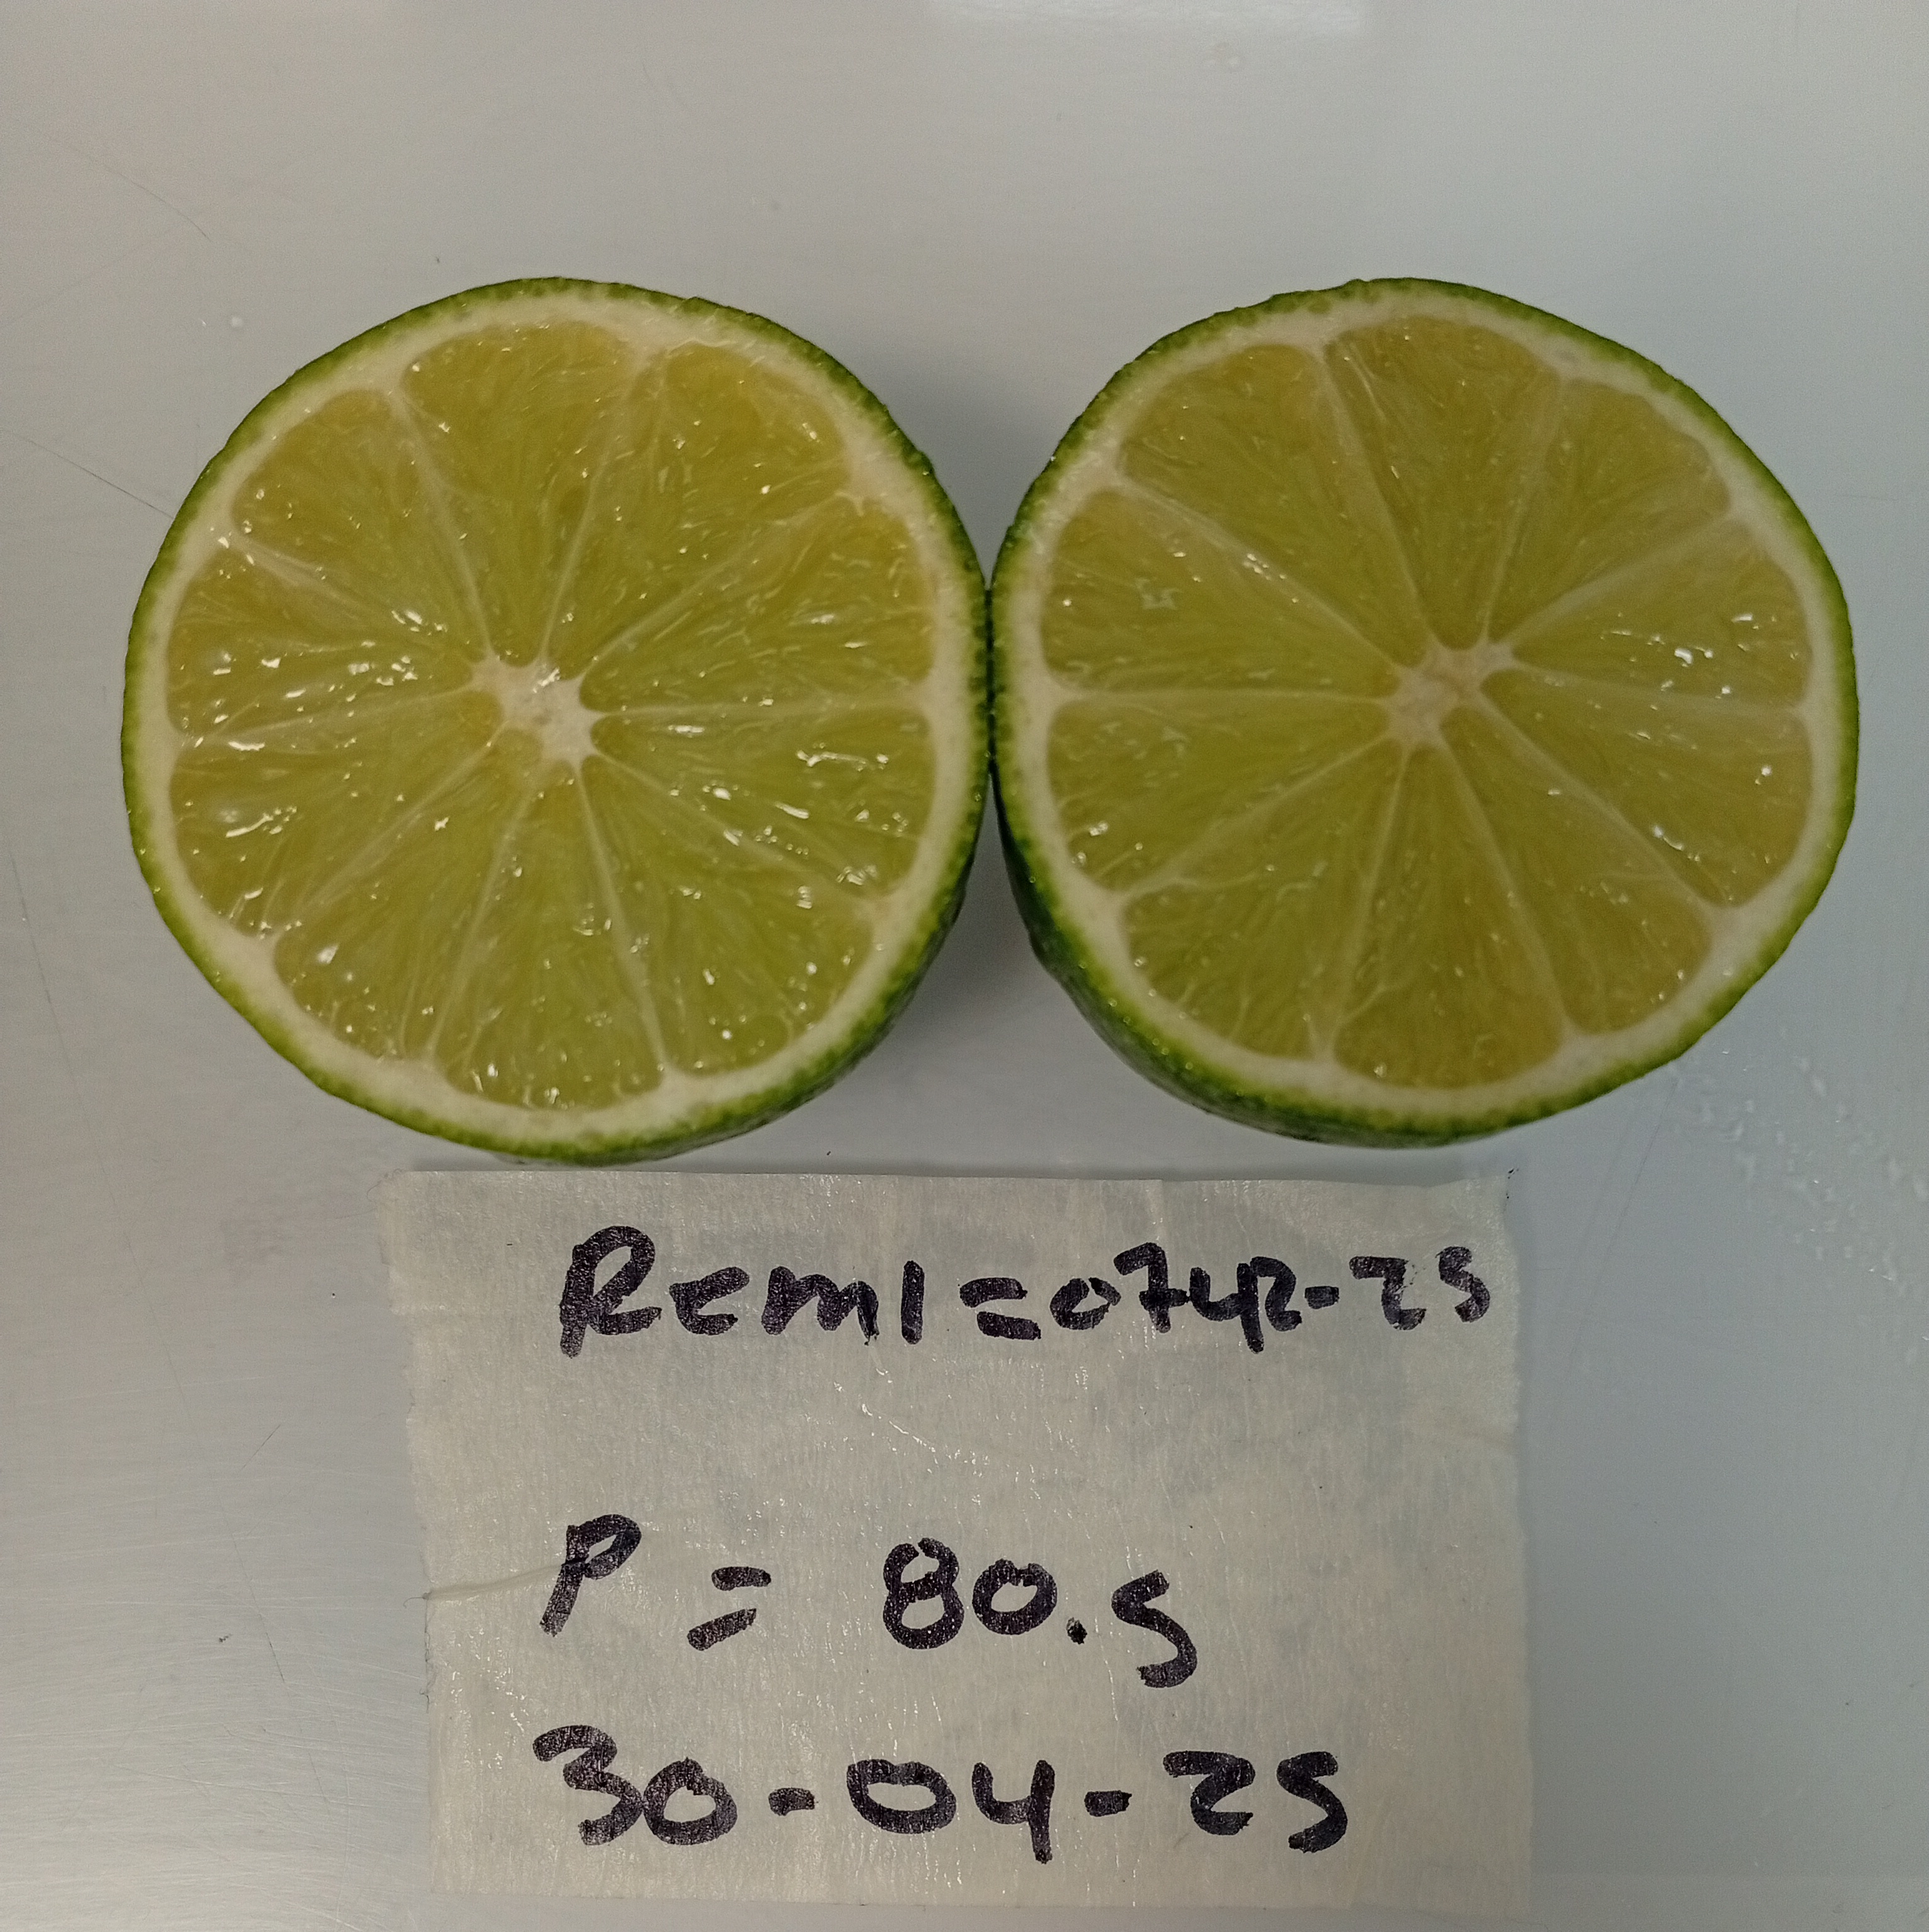 Remi=0742-25
P = 80.5
30-04-25